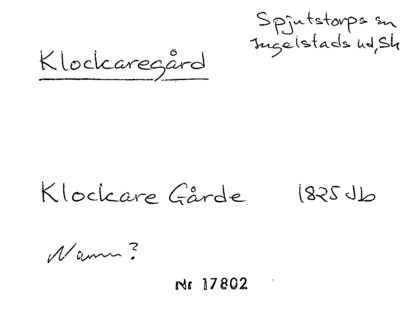 Spjutstorps sn
Ingelstads hd, Sk
Klockaregård
Klockare Gårde 1825 Jb
Namn?
Nr 17802